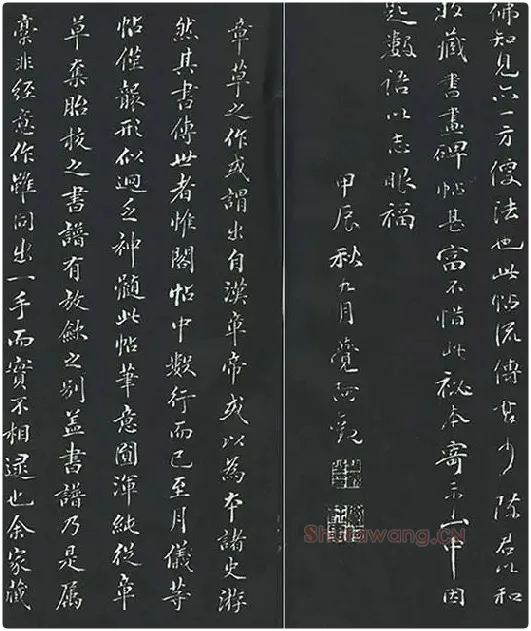 佛知見亦一方便法也此帖流傳甚少陳君以和
收藏書畫碑帖甚富不惜此祕本寄示山中因
題數語以志眼福
甲辰秋九月覺阿觀
章草之作或謂出自漢章帝或以為本諸史游
然其書傳世者惟閣帖中數行而已至月儀等
帖僅報形似迥乏神髓此帖筆意圓渾純從章
草奪胎故之書譜有放斂之別蓋書譜乃是屬
稾非經意作雖同出一手而實不相逮也余家藏
Shufawang.CN